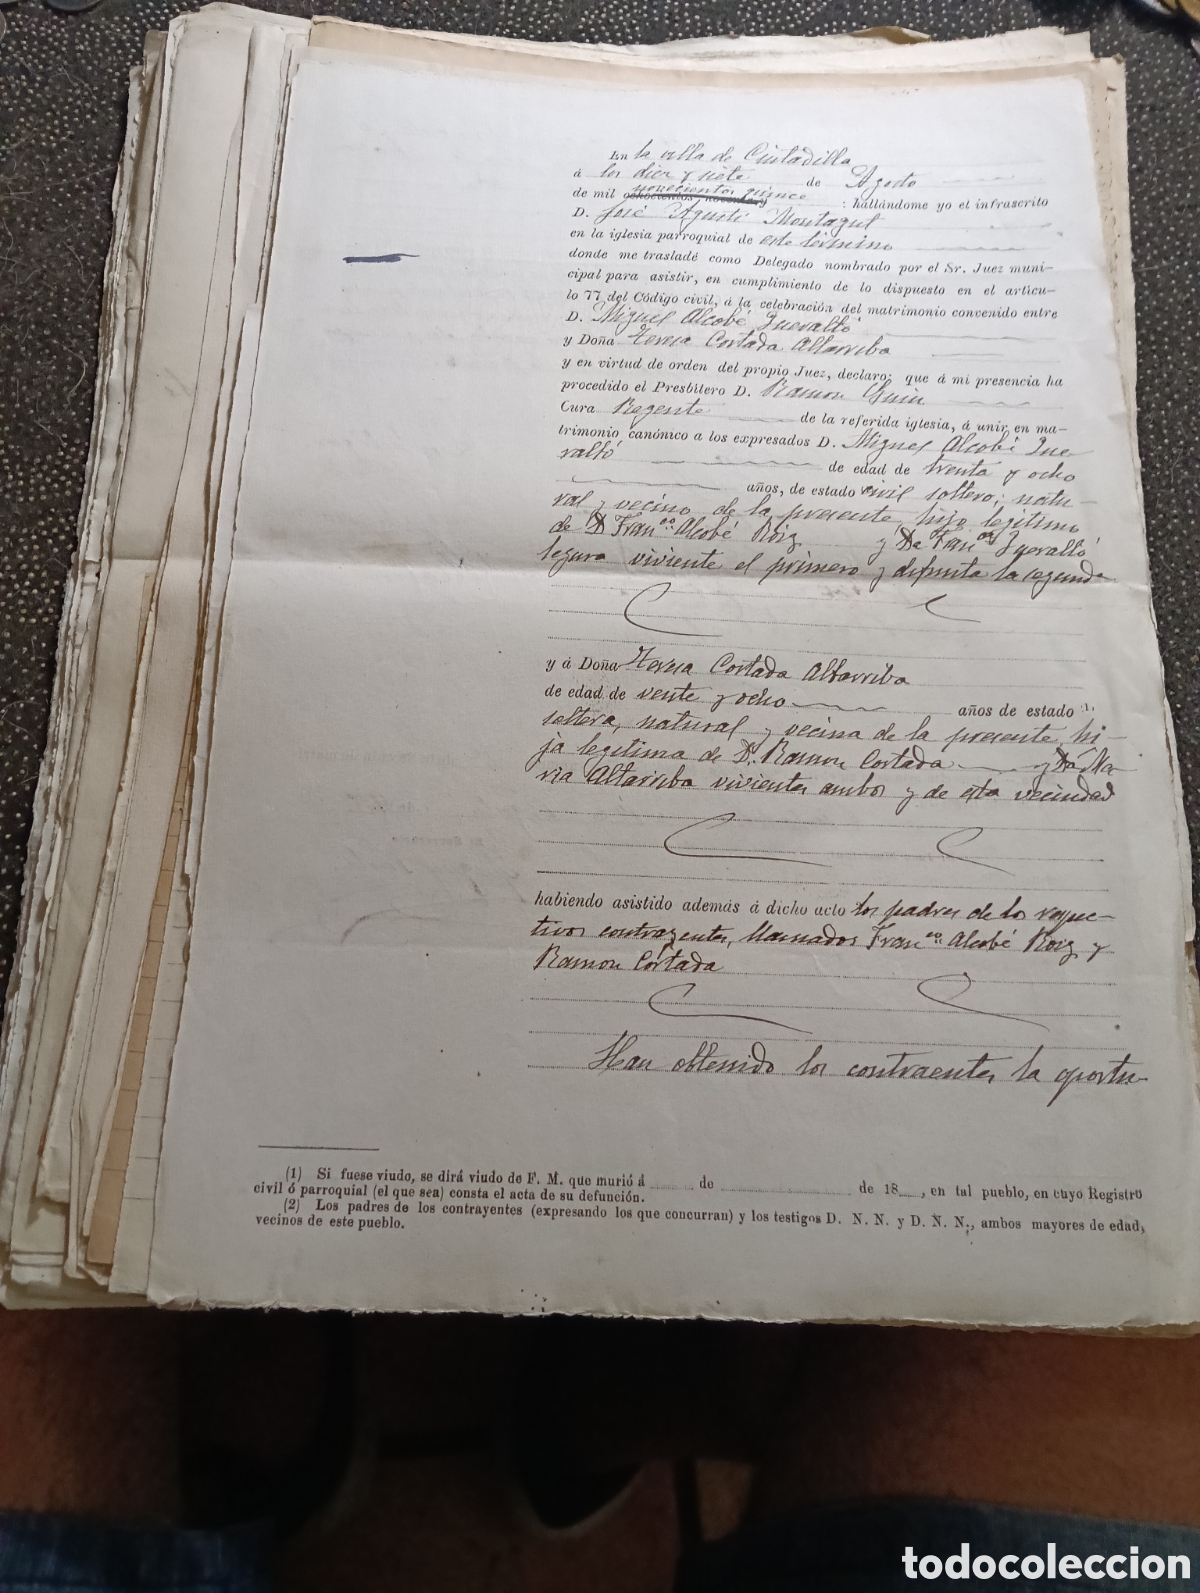 En la villa de Ciutadilla
á los diez y siete de Agosto
de mil novecientos quince : hallándome yo el infrascrito
D. José Agustí Montagut
en la iglesia parroquial de este término
donde me trasladé como Delegado nombrado por el Sr. Juez muni-
cipal para asistir, en cumplimiento de lo dispuesto en el artícu-
lo 77 del Código civil, á la celebración del matrimonio convenido entre
D. Miguel Alcobé Queraltó
y Doña Teresa Cortada Altarriba
y en virtud de orden del propio Juez, declaro: que á mi presencia ha
procedido el Presbítero D. Ramon
Cura Regente de la referida iglesia, á unir en ma-
trimonio canónico a los expresados D. Miguel Alcobé Que
raltó de edad de trenta y ocho
años, de estado civil soltero; natu-
ral y vecino de la presente, hijo legítimo
de D Fran.co Alcobé Roig y Da Fran.ca Queraltó
Segura viviente el primero y difunta la segunda
y á Doña Teresa Cortada Altarriba
de edad de vente y ocho años de estado (1)
soltera, natural y vecina de la presente, hi-
ja legítima de D. Ramon Cortada y Da Ma-
ria Altarriba vivientes ambos y de esta vecindad
habiendo asistido además á dicho acto los padres de los respec-
tivos contrayentes, llamados Fran.co Alcobé Roig y
Ramon Cortada
Han obtenido los contraentes la oportu-
(1) Si fuese viudo, se dirá viudo de F. M. que murió á de de 18 , en tal pueblo, en cuyo Registro
civil ó parroquial (el que sea) consta el acta de su defunción.
(2) Los padres de los contrayentes (expresando los que concurran) y los testigos D. N. N. y D. N. N., ambos mayores de edad,
vecinos de este pueblo.
todocoleccion